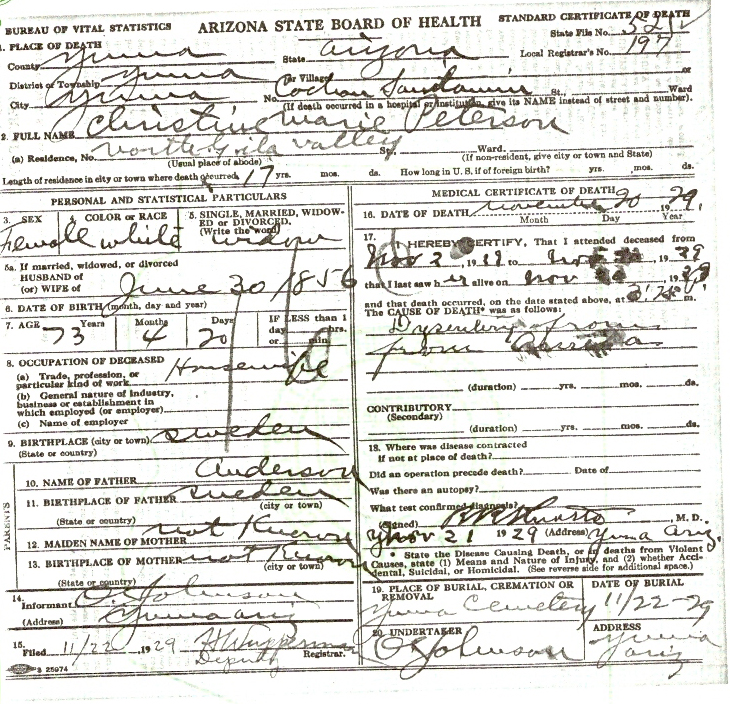 BUREAU OF VITAL STATISTICS ARIZONA STATE BOARD OF HEALTH STANDARD CERTIFICATE OF DEATH
State File No.
1. PLACE OF DEATH
County Yuma State Arizona Local Registrar's No. 197
District or Township Yuma or Village or
City Yuma No. St., Ward
(If death occurred in a hospital or institution, give its NAME instead of street and number).
2. FULL NAME Christine Marie Peterson
(a) Residence, No. North Gila Valley St., Ward.
(Usual place of abode) (If non-resident, give city or town and State)
Length of residence in city or town where death occurred, 17 yrs. mos. ds. How long in U. S., if of foreign birth? yrs. mos. ds.
PERSONAL AND STATISTICAL PARTICULARS
3. SEX 4. COLOR or RACE 5. SINGLE, MARRIED, WIDOWED or DIVORCED.
(Write the word)
Female white widow
5a. If married, widowed, or divorced
HUSBAND of
(or) WIFE of
June 30 1856
6. DATE OF BIRTH (month, day and year)
7. AGE Years Months Days IF LESS than 1
day hrs.
or min.
73 4 20
8. OCCUPATION OF DECEASED
(a) Trade, profession, or
particular kind of work Housewife
(b) General nature of industry,
business or establishment in
which employed (or employer)
(c) Name of employer
9. BIRTHPLACE (city or town) Sweden
(State or country)
PARENTS
10. NAME OF FATHER Anderson
11. BIRTHPLACE OF FATHER Sweden
(city or town)
(State or country)
12. MAIDEN NAME OF MOTHER not Known
13. BIRTHPLACE OF MOTHER not Known
(city or town)
(State or country)
14.
Informant O. Johnson
(Address) Yuma Ariz
15.
Filed 11/22, 1929
Deputy Registrar.
S 25974
MEDICAL CERTIFICATE OF DEATH
16. DATE OF DEATH November 20 1929
Month Day Year
17.
I HEREBY CERTIFY, That I attended deceased from
Nov 2, 19 to Nov, 1929
that I last saw h er alive on Nov, 19
and that death occurred, on the date stated above, at m.
The CAUSE OF DEATH* was as follows:
Dysentery from
from
(duration) yrs. mos. ds.
CONTRIBUTORY
(Secondary)
(duration) yrs. mos. ds.
18. Where was disease contracted
if not at place of death?
Did an operation precede death? Date of
Was there an autopsy?
What test confirmed diagnosis?
(Signed) M. D.
Nov 21 1929 (Address) Yuma Ariz.
* State the Disease Causing Death, or in deaths from Violent
Causes, state (1) Means and Nature of Injury, and (2) whether Accidental, Suicidal, or Homicidal. (See reverse side for additional space.)
19. PLACE OF BURIAL, CREMATION OR REMOVAL DATE OF BURIAL
Yuma Cemetery 11/22-29
20. UNDERTAKER ADDRESS
O. Johnson Yuma
Ariz